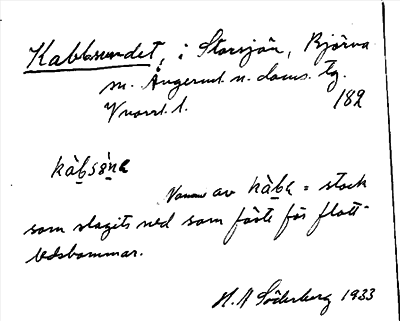 Kabbsundet, i Storsjön, Björna
sn. Ångerml. n. doms. tg.
182
kàb̲sə̀n̲a
Namn av kàb̲a = stock
som slagits ned som fäste för flott-
ledsbommar.
H. A Söderberg 1933